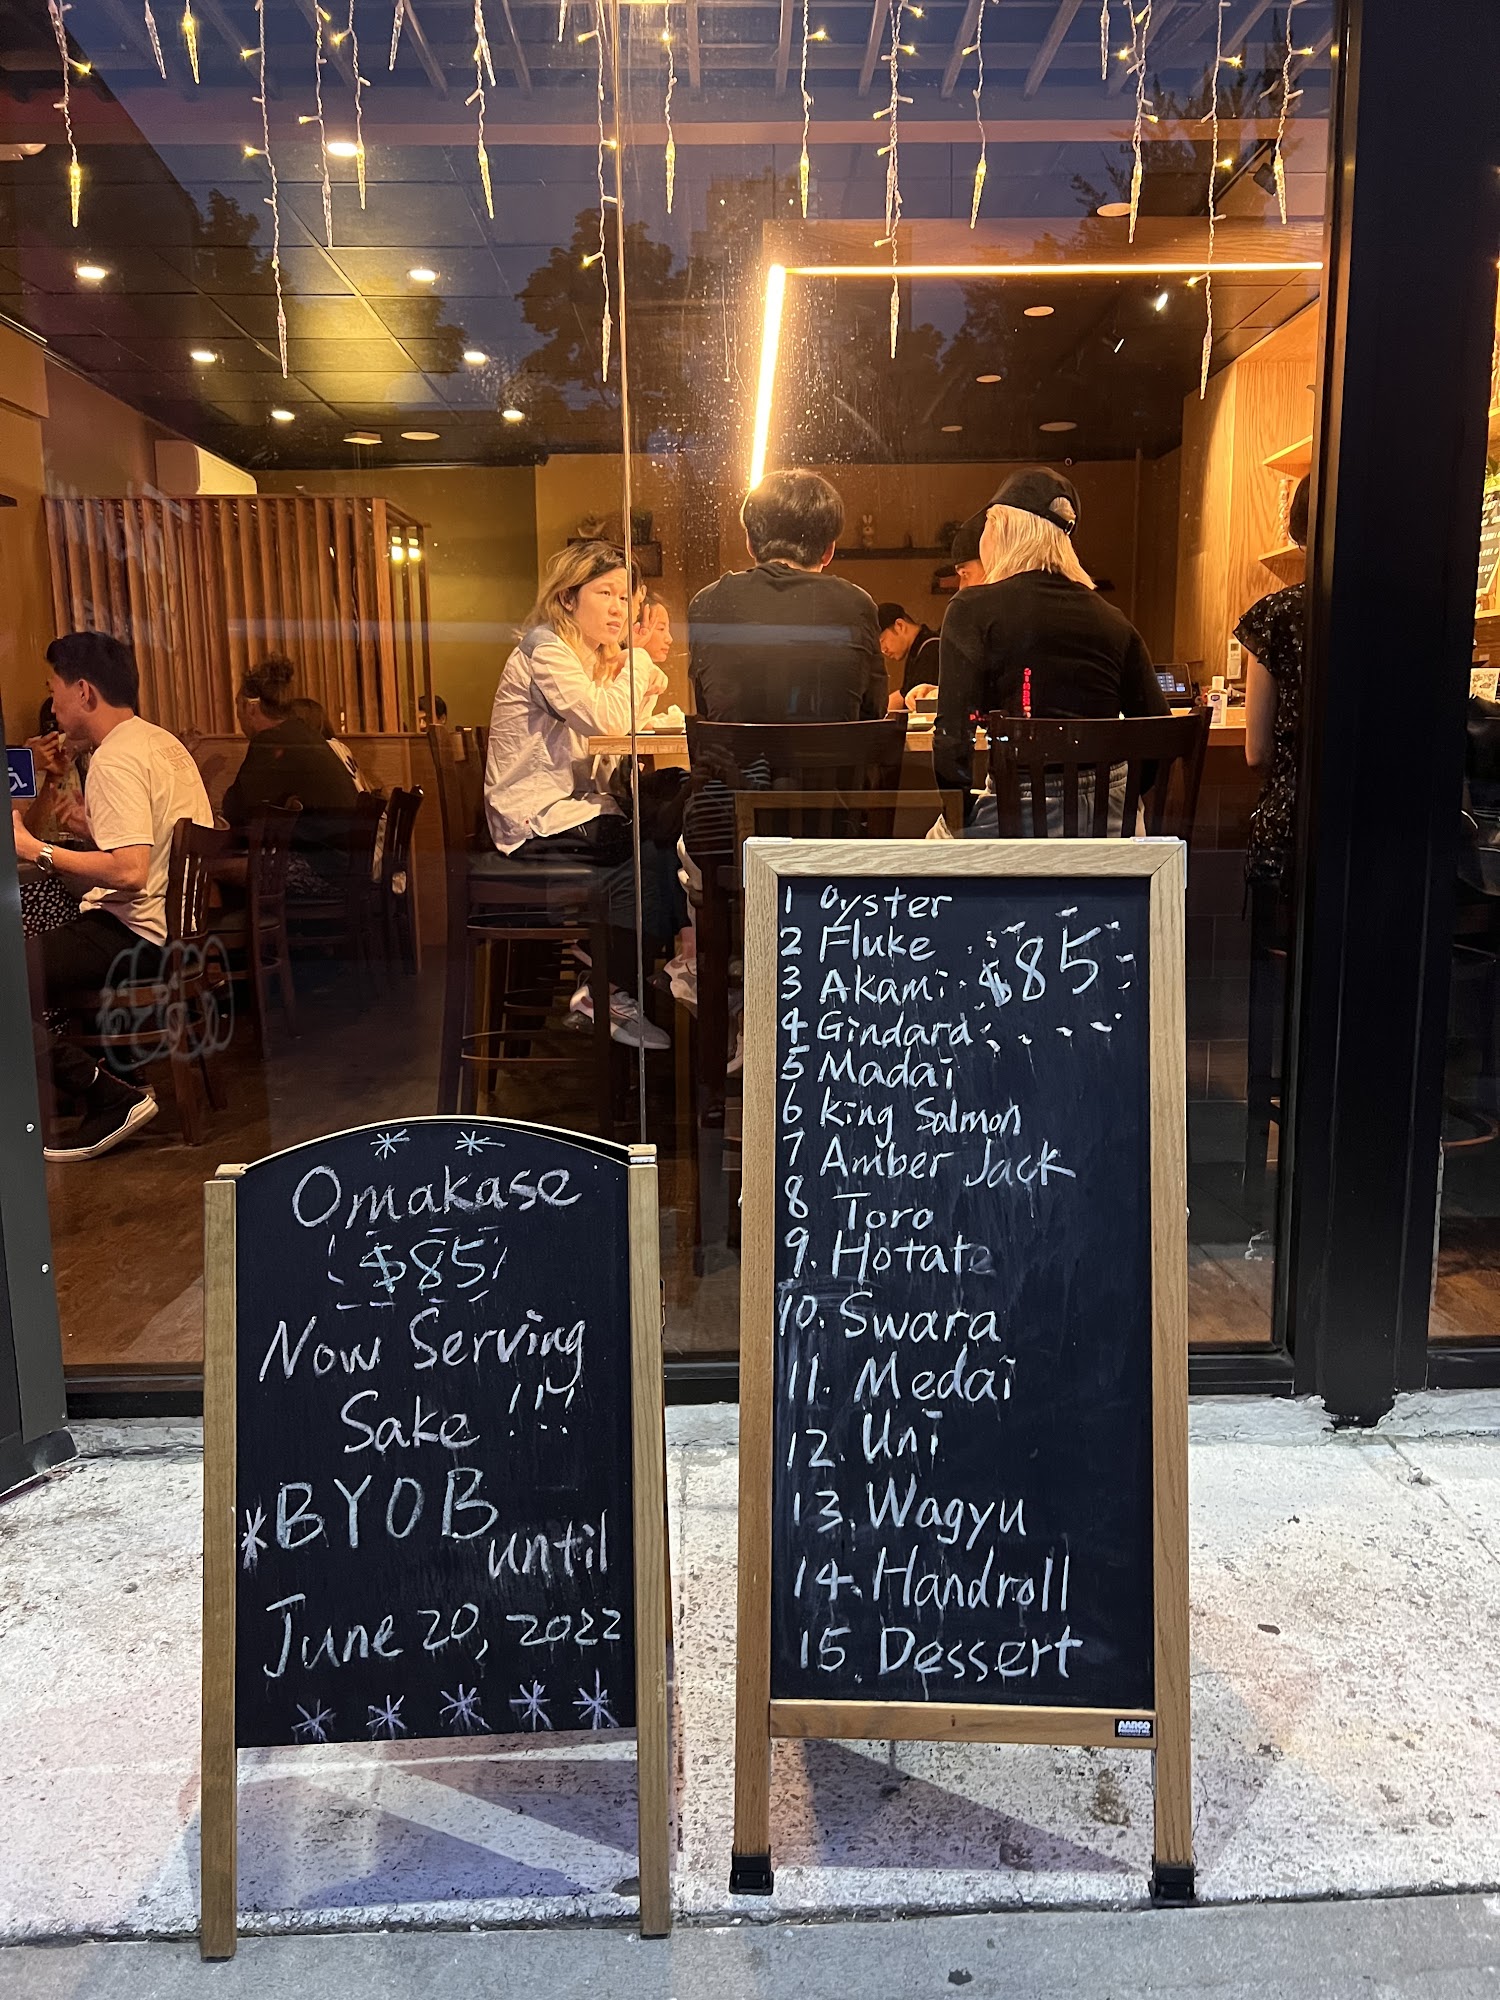 Omakase
$85
Now Serving
Sake !!!!
*BYOB until
June 20, 2022
1 Oyster
2 Fluke
3 Akami
$85
4 Gindara
5 Madai
6 King Salmon
7 Amber Jack
8 Toro
9. Hotate
10. Swara
11. Medai
12. Uni
13. Wagyu
14. Handroll
15. Dessert
AARCO